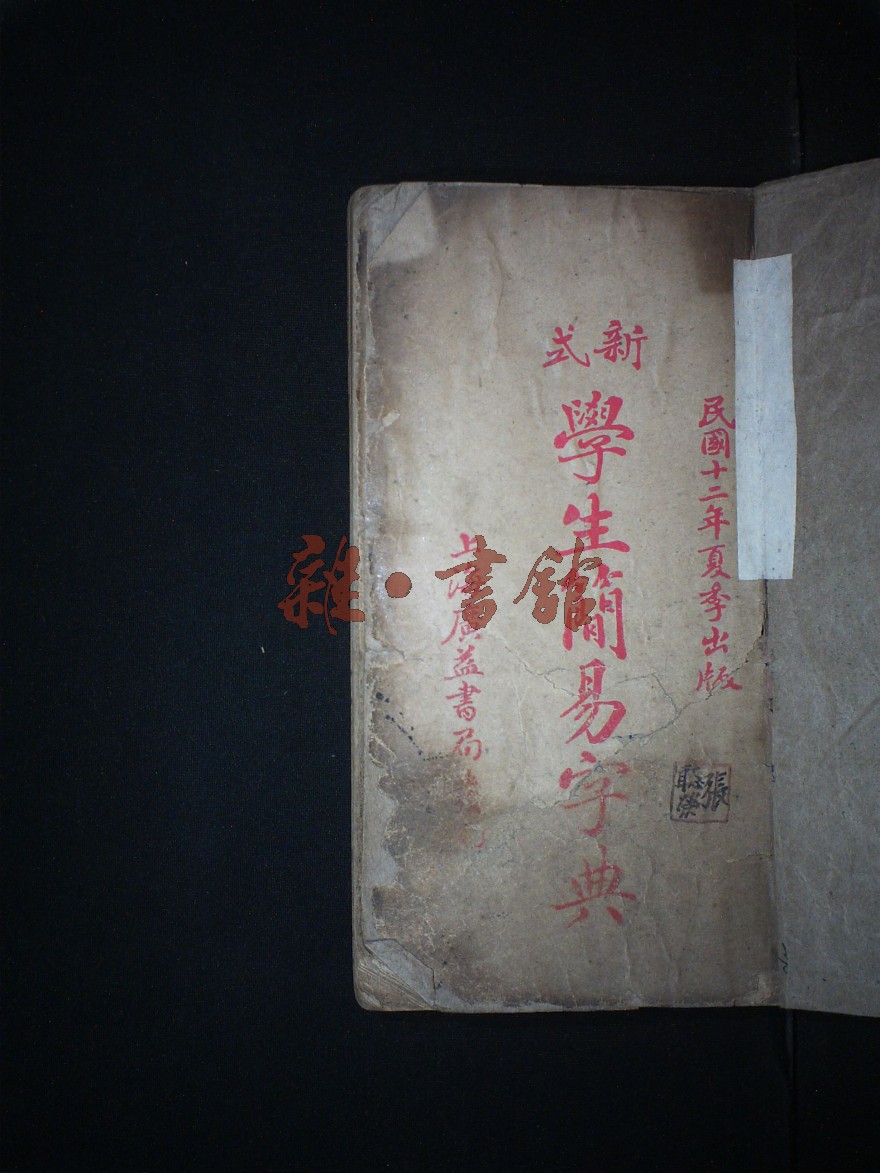 民國十二年夏季出版
新式
學生簡易字典
上海廣益書局
張
雜·書館